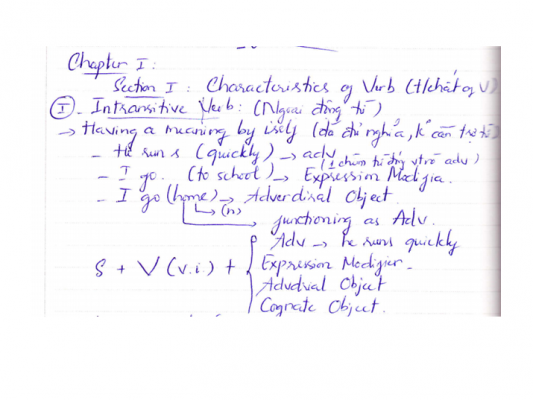 Chapter I:
Section I: Characteristics of Verb (t/chất of V)
I - Intransitive Verb: (Ngoại động từ)
→ Having a meaning by itself (đã đủ nghĩa, k° cần
- He runs (quickly) → adv
- I go. (to school) → Expression Modifier.
- I go (home) → Adverbial Object.
→ (n)
functioning as Adv.
Adv → he runs quickly
S + V (v.i.) + Expression Modifier -
Adverbial Object
Cognate Object.